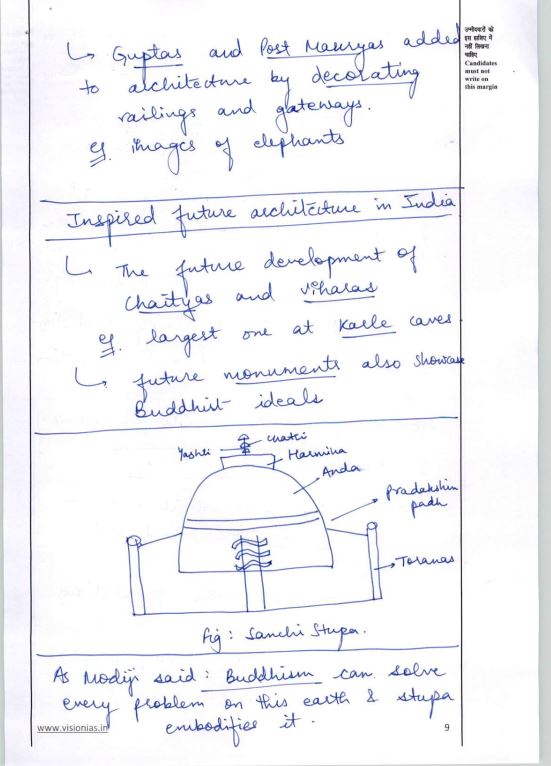 ↳ Guptas and Post Mauryas added
to architecture by decorating
railings and gateways.
eg. images of elephants
उम्मीदवारों को
इस हाशिए में
नहीं लिखना
चाहिए
Candidates
must not
write on
this margin
Inspired future architecture in India
↳ The future development of
Chaityas and Viharas
eg. largest one at Karle caves.
↳ future monuments also showcase
Buddhist ideals
Yashti
chatri
Harmika
Anda
Pradakshin
padh
Toranas
fig : Sanchi Stupa.
As Modiji said : Buddhism can solve
every problem on this earth & stupa
embodifies it.
www.visionias.in
9